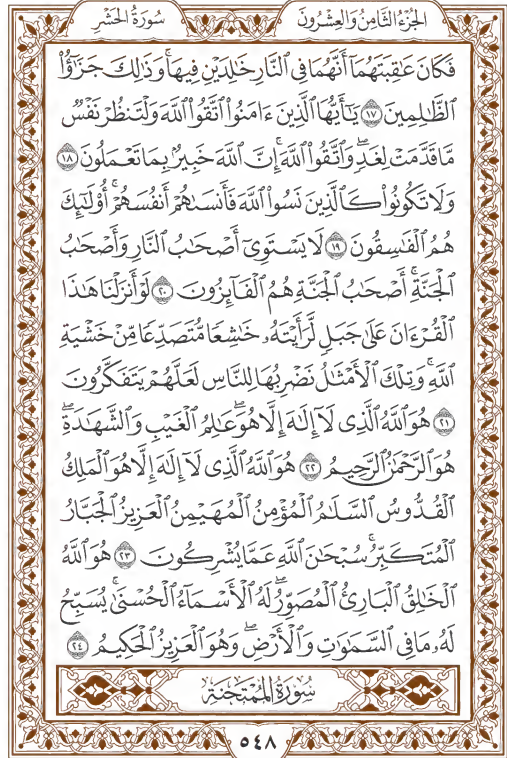 الجُزْءُ الثَّامِنُ وَالعِشْرُونَ
سُورَةُ الحَشْرِ
فَكَانَ عَٰقِبَتَهُمَآ أَنَّهُمَا فِي ٱلنَّارِ خَٰلِدَيْنِ فِيهَا ۚ وَذَٰلِكَ جَزَٰٓؤُا۟
ٱلظَّٰلِمِينَ ١٧ يَٰٓأَيُّهَا ٱلَّذِينَ ءَامَنُوا۟ ٱتَّقُوا۟ ٱللَّهَ وَلْتَنظُرْ نَفْسٌ
مَّا قَدَّمَتْ لِغَدٍ ۖ وَٱتَّقُوا۟ ٱللَّهَ ۚ إِنَّ ٱللَّهَ خَبِيرٌۢ بِمَا تَعْمَلُونَ ١٨
وَلَا تَكُونُوا۟ كَٱلَّذِينَ نَسُوا۟ ٱللَّهَ فَأَنسَىٰهُمْ أَنفُسَهُمْ ۚ أُو۟لَٰٓئِكَ
هُمُ ٱلْفَٰسِقُونَ ١٩ لَا يَسْتَوِىٓ أَصْحَٰبُ ٱلنَّارِ وَأَصْحَٰبُ
ٱلْجَنَّةِ ۚ أَصْحَٰبُ ٱلْجَنَّةِ هُمُ ٱلْفَآئِزُونَ ٢٠ لَوْ أَنزَلْنَا هَٰذَا
ٱلْقُرْءَانَ عَلَىٰ جَبَلٍ لَّرَأَيْتَهُۥ خَٰشِعًا مُّتَصَدِّعًا مِّنْ خَشْيَةِ
ٱللَّهِ ۚ وَتِلْكَ ٱلْأَمْثَٰلُ نَضْرِبُهَا لِلنَّاسِ لَعَلَّهُمْ يَتَفَكَّرُونَ
٢١ هُوَ ٱللَّهُ ٱلَّذِى لَآ إِلَٰهَ إِلَّا هُوَ ۖ عَٰلِمُ ٱلْغَيْبِ وَٱلشَّهَٰدَةِ ۖ
هُوَ ٱلرَّحْمَٰنُ ٱلرَّحِيمُ ٢٢ هُوَ ٱللَّهُ ٱلَّذِى لَآ إِلَٰهَ إِلَّا هُوَ ٱلْمَلِكُ
ٱلْقُدُّوسُ ٱلسَّلَٰمُ ٱلْمُؤْمِنُ ٱلْمُهَيْمِنُ ٱلْعَزِيزُ ٱلْجَبَّارُ
ٱلْمُتَكَبِّرُ ۚ سُبْحَٰنَ ٱللَّهِ عَمَّا يُشْرِكُونَ ٢٣ هُوَ ٱللَّهُ
ٱلْخَٰلِقُ ٱلْبَارِئُ ٱلْمُصَوِّرُ ۖ لَهُ ٱلْأَسْمَآءُ ٱلْحُسْنَىٰ ۚ يُسَبِّحُ
لَهُۥ مَا فِي ٱلسَّمَٰوَٰتِ وَٱلْأَرْضِ ۖ وَهُوَ ٱلْعَزِيزُ ٱلْحَكِيمُ ٢٤
سُورَةُ المُمْتَحنَةِ
٥٤٨